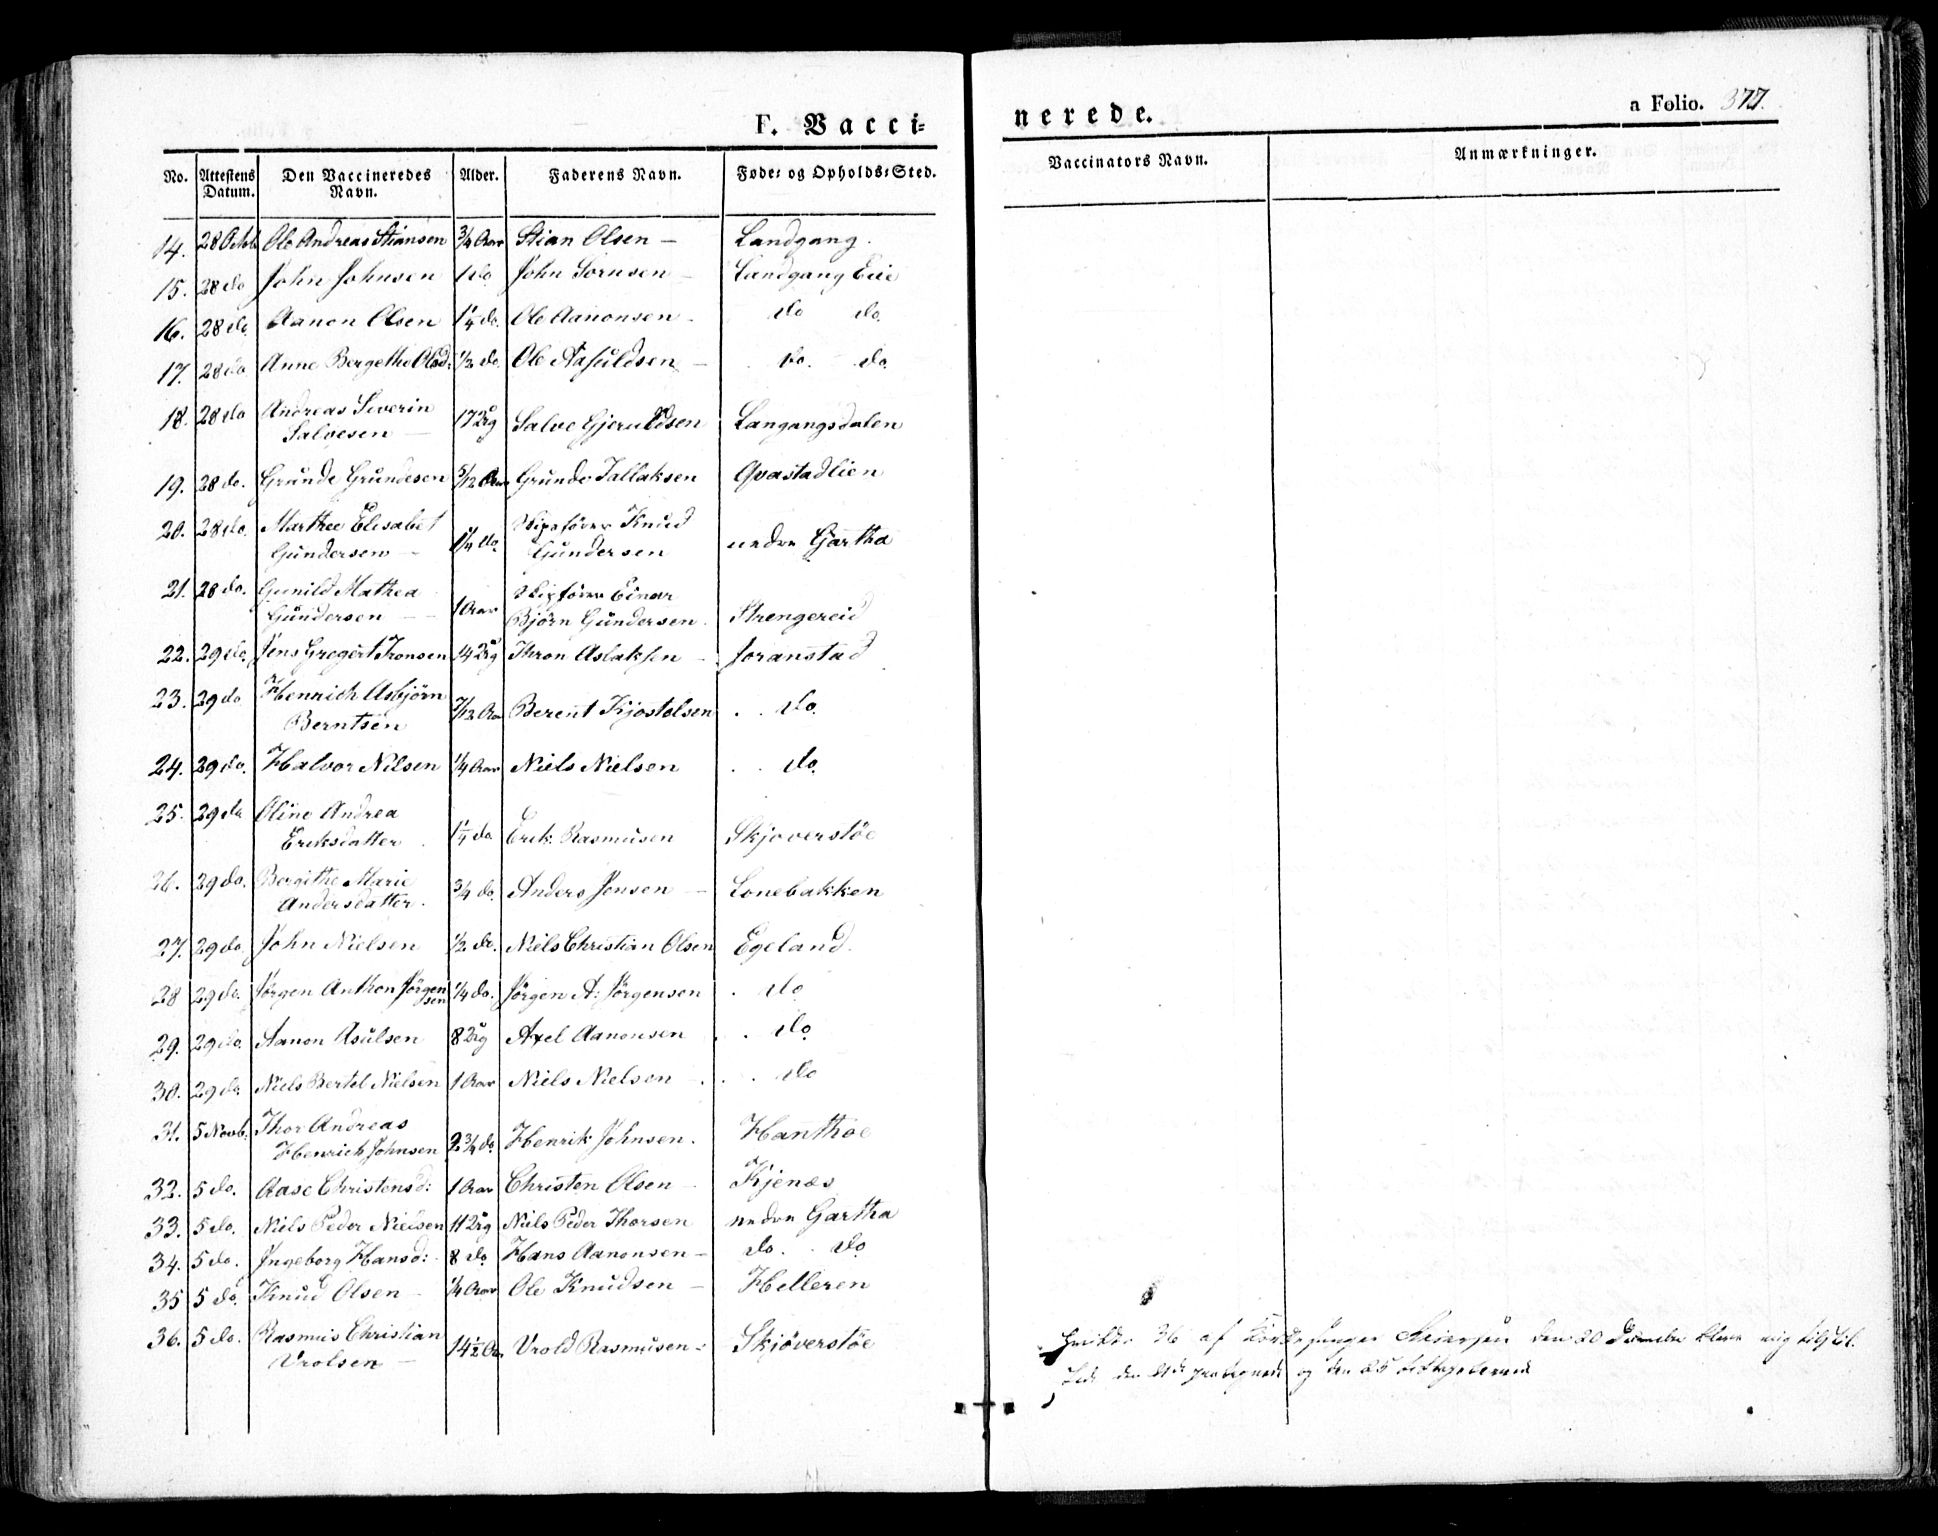 F. Vacci=
nerede.
a Folio. 377.
No. Attestens Datum. Den Vaccineredes Navn. Alder. Faderens Navn. Føde= og Opholds=Sted. Vaccinators Navn. Anmærkninger.
14. 28 Octob Ole Andreas Stiansen 3/4 Aar Stian Olsen — Landgang.
15. 28 do John Johnsen 1 do John Sørnsen — Landgang Eie
16. 28 do. Aanon Olsen 1 1/4 do. Ole Aanonsen — do do
17. 28 do. Anne Bergethe Olsd: 1/2 do. Ole Aasuldsen — do. do.
18. 28 do Andreas Severin
Salvesen — 17 Ug Salve Gjeruldsen Langangsdalen
19. 28 do. Grunde Grundesen 5/12 Aar Grunde Tallaksen Qvastadlien
20. 28 do. Marthee Elisabet Skipsfører Knud
Gundersen — 1 1/4 do. Gundersen nedre Gartha
21. 28 do. Gunild Mathea Skipsfører Einar
Gundersen — 1 Aar Bjørn Gundersen. Strengereid
22. 29 do. Jens Gregert Tronsen 14 Ug Thron Aslaksen — Joranstad
23. 29 do Henrich Asbjørn
Berntsen 7/12 Aar Berent Kjostolsen . . do.
24. 29 do. Halvor Nilsen 1/4 Aar Niels Nielsen . . do.
25. 29 do Oline Andrea
Eriksdatter . 1 1/4 do Erik Rasmusen Skjoverstøe
26. 29 do. Bergithe Marie
Andersdatter. 3/4 do. Anders Jensen — Lonebakken
27. 29 do John Nielsen 1/2 do. Niels Christian Olsen Egeland.
28 29 do. Jørgen Anthon Jørgensen 1/4 do. Jørgen A: Jørgensen . do
29. 29 do. Aanon Asulsen 8 Ug Axel Aanonsen . . do
30. 29 do. Niels Bertel Nielsen 1 Aar Niels Nielsen — . . do
31. 5 Novb. Thor Andreas
Henrich Johnsen 2 3/4 do. Henrik Johnsen. Hanthoe
32. 5 do. Aase Christensd: 1 Aar Christen Olsen — Kjenæs
33. 5 do. Niels Peder Nielsen 11 Ug Niels Peder Thorsen nedre Gartha
34. 5 do. Ingeborg Hansd: 8 do Hans Aanonsen — do. do
35 5 do. Knud Olsen — 1/4 Aar Ole Knudsen — Helleren
36. 5 do. Rasmus Christian
Vrolsen — 14 1/2 Aar Vrold Rasmusen — Skjøverstøe
36 af den 20 December bleve mig tilstil.
den 21de og den 25